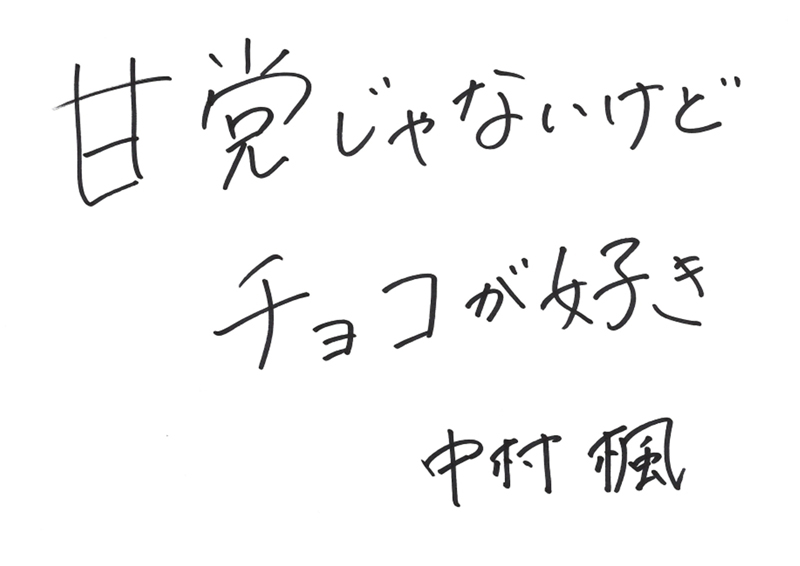 甘党じゃないけど
チョコが好き
中村 楓